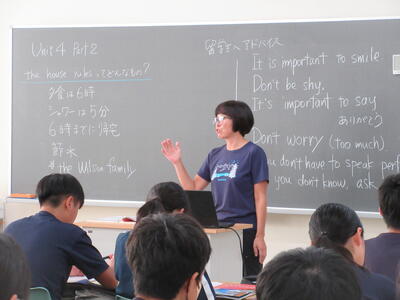 Unit 4 Part 2
the house rules ってどんなもの?
夕食は6時
シャワーは5分
6時までに帰宅
節水
the Wilson family
留学生へアドバイス
It is important to smile
Don't be shy.
It's important to say
ありがとう
Don't worry (too much)
You don't have to speak perf
you don't know, ask